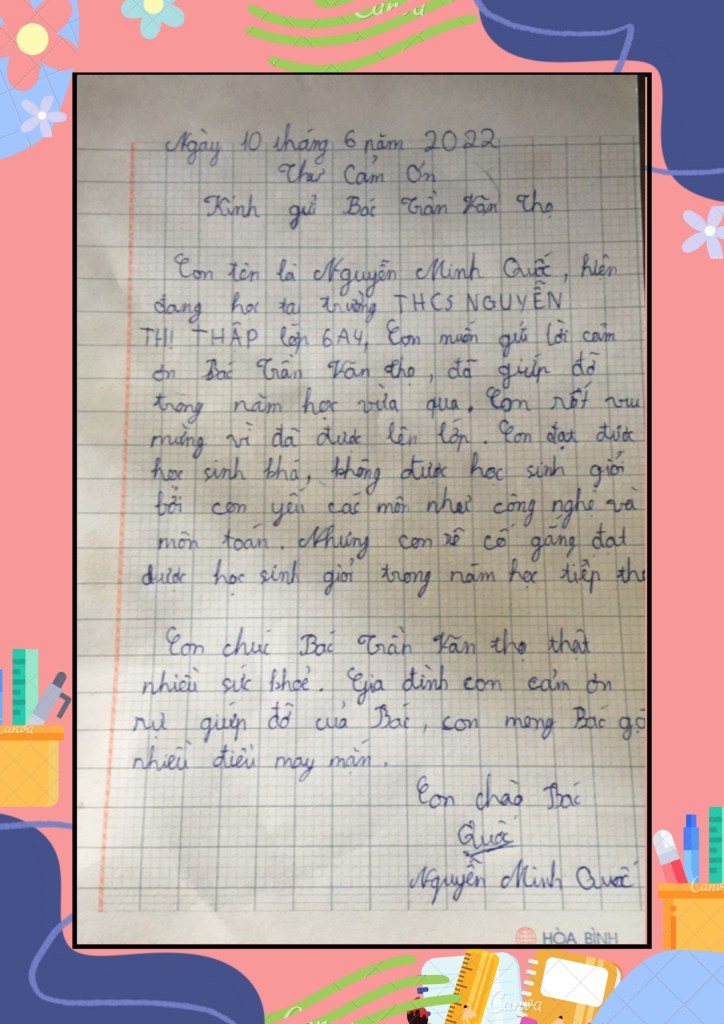 Ngày 10 tháng 6 năm 2022
Thư Cảm Ơn
Kính gửi Bác Trần Văn Thọ
Con tên là Nguyễn Minh Quốc, hiện
đang học tại trường THCS NGUYỄN
THỊ THẬP lớp 6A4, Con muốn gửi lời cảm
ơn Bác Trần Văn Thọ, đã giúp đỡ
trong năm học vừa qua. Con rất vui
mừng vì đã được lên lớp. Con đạt được
học sinh khá, không được học sinh giỏi
bởi con yếu các môn như công nghệ và
môn toán. Nhưng con sẽ cố gắng đạt
được học sinh giỏi trong năm học tiếp the
Con chúc Bác Trần Văn thọ thật
nhiều sức khoẻ. Gia đình con cảm ơn
sự giúp đỡ của Bác, con mong Bác gặ
nhiều điều may mắn.
Con chào Bác
Quốc
Nguyễn Minh Quốc
HÒA BÌNH
Canva
Canva
Canva
Canva
Canva